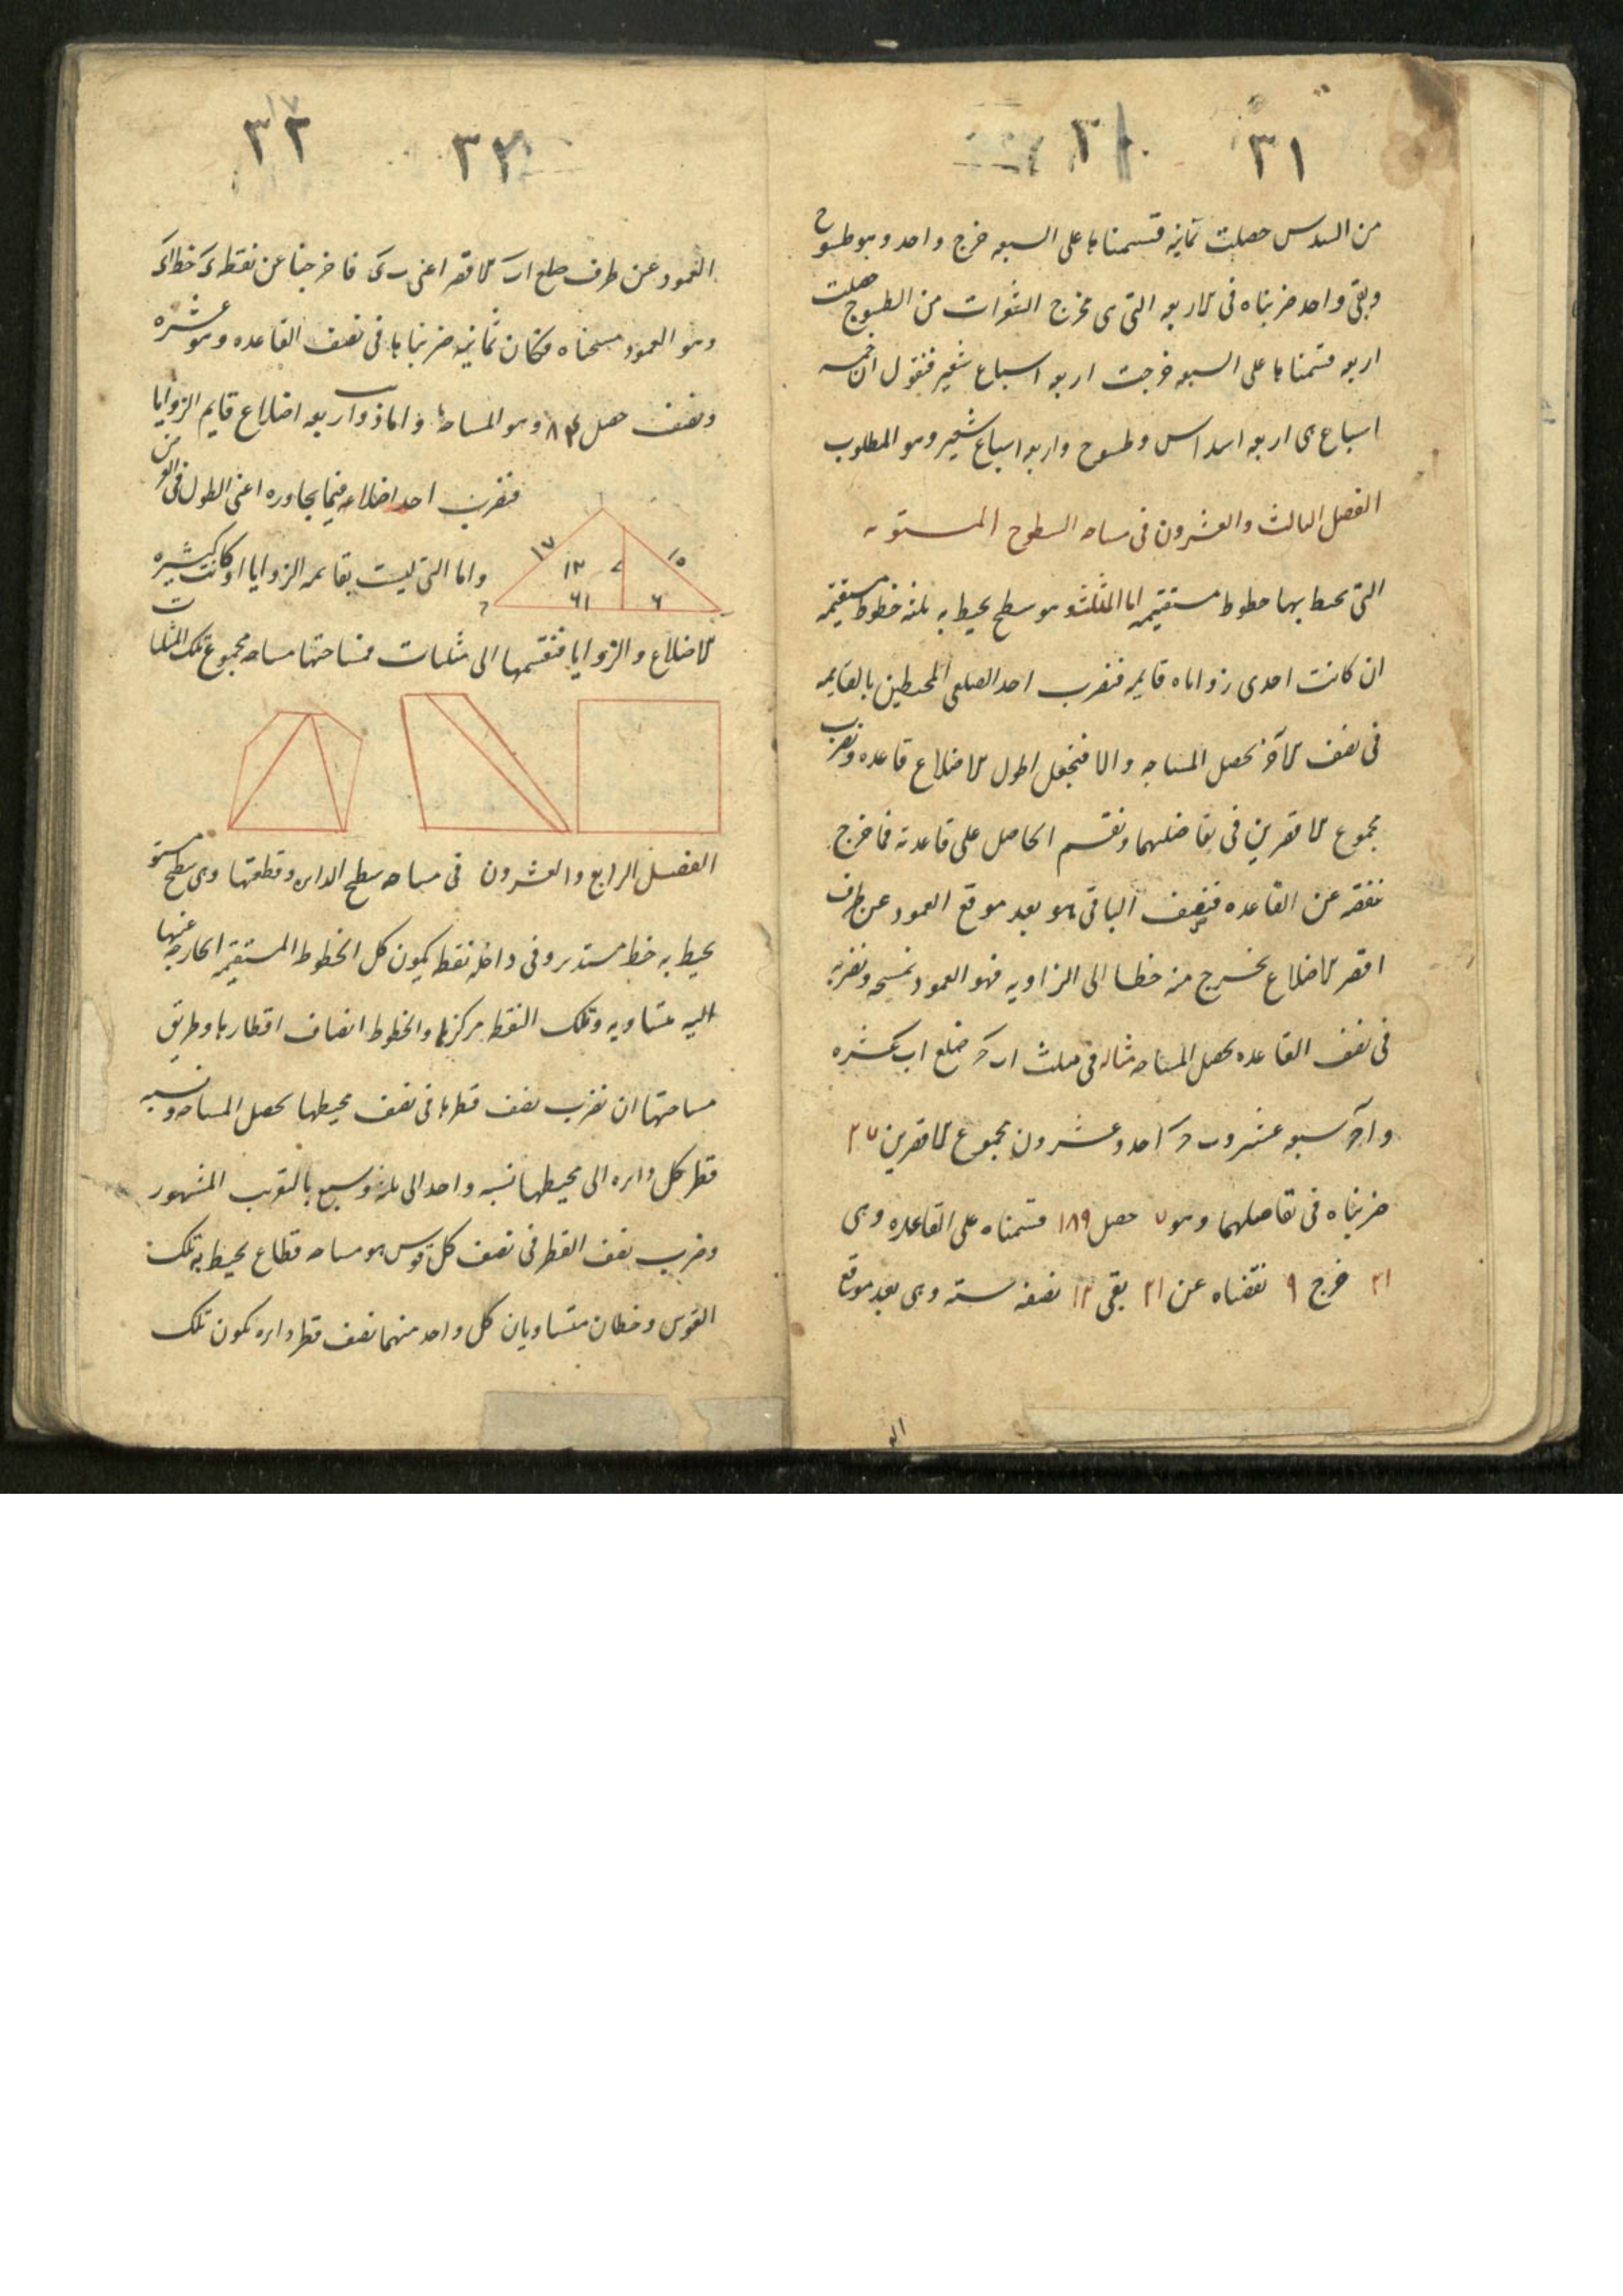 ٣١
من السدس حصلت ثمانية قسمناها على السبعه خرج واحد وهو طسوج
وبقى واحد ضربناه فى الاربعه التى هى مخرج الشعرات من الطسوج حصلت
اربعه قسمناها على السبعه خرجت اربعه اسباع شعير فنقول ان خمسه
اسباع هى اربعه اسداس وطسوج واربعه اسباع شعير وهو المطلوب
الفصل الثالث والعشرون فى مساحه السطوح المستويه
التى يحيط بها خطوط مستقيمه اما المثلث وهو سطح يحيط به ثلثه خطوط مستقيمه
ان كانت احدى زواياه قايمه فنضرب احد الضلعى المحيطين بالقايمه
فى نصف الآخر يحصل المساحه والا فنجعل اطول الاضلاع قاعده ونضرب
مجموع الاقصرين فى تفاضلهما ونقسم الحاصل على قاعدته فما خرج
ننقصه عن القاعده فنصف الباقى هو بعد موقع العمود عن طرف
اقصر الاضلاع نخرج منه خطا الى الزاويه فهو العمود نمسحه ونضربه
فى نصف القاعده يحصل المساحه مثاله فى مثلث ا ب ح ضلع اب عشره
و ا ح سبعه عشر و ب ح احد وعشرون مجموع الاقصرين ٢٧
ضربناه فى تفاضلهما وهو ٧ حصل ١٨٩ قسمناه على القاعده وهى
٢١ خرج ٩ نقصناه عن ٢١ بقى ١٢ نصفه سته وهى بعد موقع
٣٢
٣٢
العمود عن طرف ضلع اب الاقصر اعنى ب ى فاخرجنا عن نقطه ى خط اى
وهو العمود مسحناه فكان ثمانيه ضربناها فى نصف القاعده وهو عشره
ونصف حصل ٨٤ وهو المساحه واما ذوات اربعه اضلاع قايم الزوايا
فنضرب احد اضلاعه فيما يجاوره اعنى الطول فى العرض
واما التى ليست بقايمه الزوايا او كانت كثيره
الاضلاع والزوايا فنقسمها الى مثلثات فمساحتها مساحه مجموع تلك المثلثات
١٧
١٠
١٣
٦
الفصل الرابع والعشرون فى مساحه سطح الدايره وقطعتها وهى سطح مستو
يحيط به خط مستدير وفى داخله نقطه يكون كل الخطوط المستقيمه الخارجه عنها
اليه متساويه وتلك النقطه مركزها والخطوط انصاف اقطارها وطريق
مساحتها ان نضرب نصف قطرها فى نصف محيطها يحصل المساحه ونسبه
قطر كل دايره الى محيطها نسبه واحد الى ثلثه وسبع بالتقريب المشهور
وضرب نصف القطر فى نصف كل قوس هو مساحه قطاع يحيط به تلك
القوس وخطان متساويان كل واحد منهما نصف قطر دايره يكون تلك